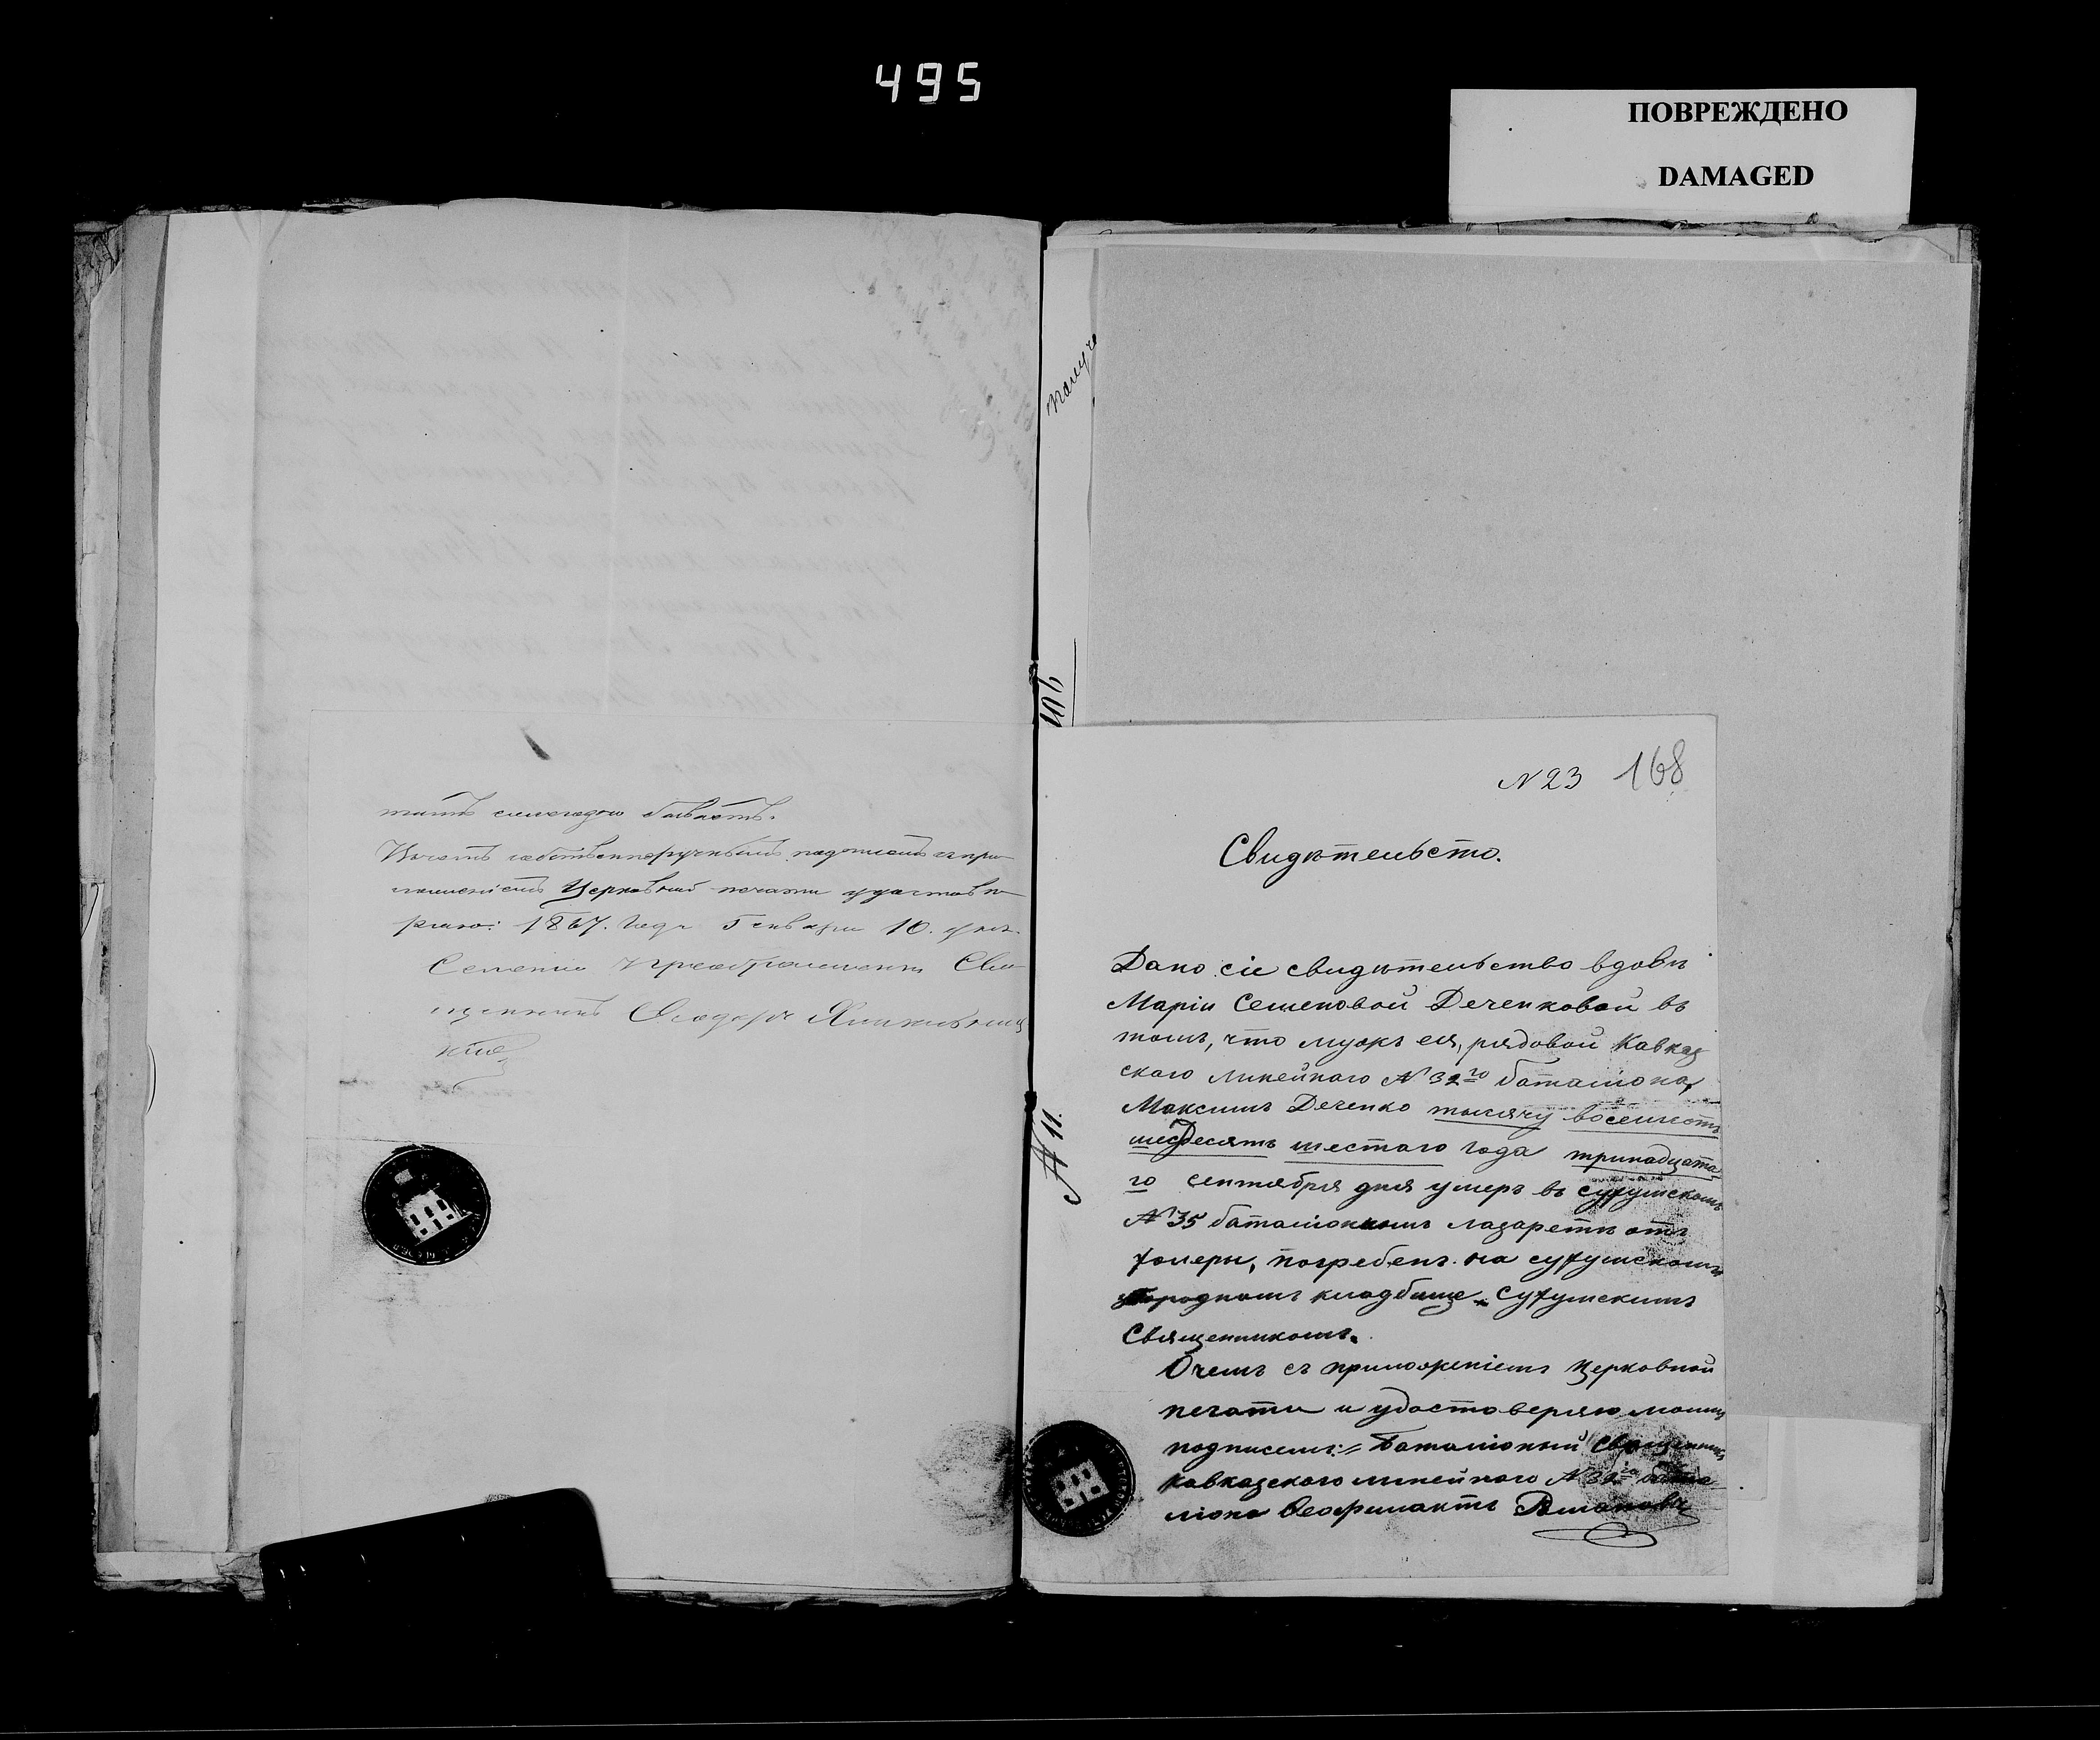 495
ПОВРЕЖДЕНО
DAMAGED
тить
Въ чемъ собственноручнымъ подписомъ и при
ложеніемъ Церковной печати удостовѣ
ряю: 1867. года Генваря 10. дня.
Свя
щенникъ Ѳеодоръ
получе
№ 11.
N 23 168
Свидѣтельсто.
Дано сіе свидѣтельство вдовѣ
Маріи Семеновой Деченковой въ
томъ, что мужъ ея, рядовой Кавказ
скаго линейнаго № 32го баталіона,
Максимъ Деченко тысячу восемьсотъ
шесдесятъ шестаго года тринадцата
го сентября дня умеръ въ сухумскомъ
№ 35 баталіонномъ лазаретѣ отъ
холеры, погребенъ на сухумскомъ
кладбище Сухумскимъ
Священникомъ.
Очемъ съ приложеніемъ церковной
печати и удостоверяю моимъ
подписемъ:= Баталіоный Священникъ
кавказскаго линейнаго № 32го бата
ліона Ѳеофилактъ